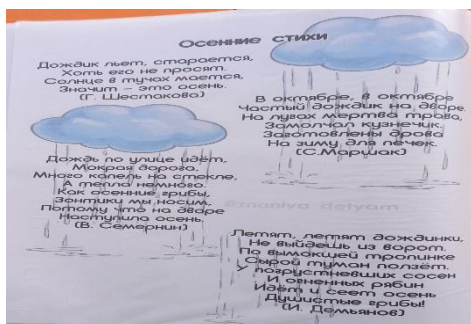 Осенние стихи
Дождик льет, старается,
Хоть его не просят.
Солнце в тучах мается,
Значит – это осень.
(Г. Шестакова)
В октябре, в октябре
Частый дождик на дворе.
На лугах мертва трава,
Замолчал кузнечик.
Заготовлены дрова
На зиму для печек.
(С.Маршак)
Дождь по улице идёт,
Мокрая дорога,
Много капель на стекле,
А тепла немного.
Как осенние грибы,
Зонтики мы носим,
Потому что на дворе
Наступила осень.
(В. Семернин)
@znaniya_detyam
Летят, летят дождинки,
Не выйдешь из ворот.
По вымокшей тропинке
Сырой туман ползёт.
У погрустневших сосен
И огненных рябин
Идёт и сеет осень
Душистые грибы!
(И. Демьянов)